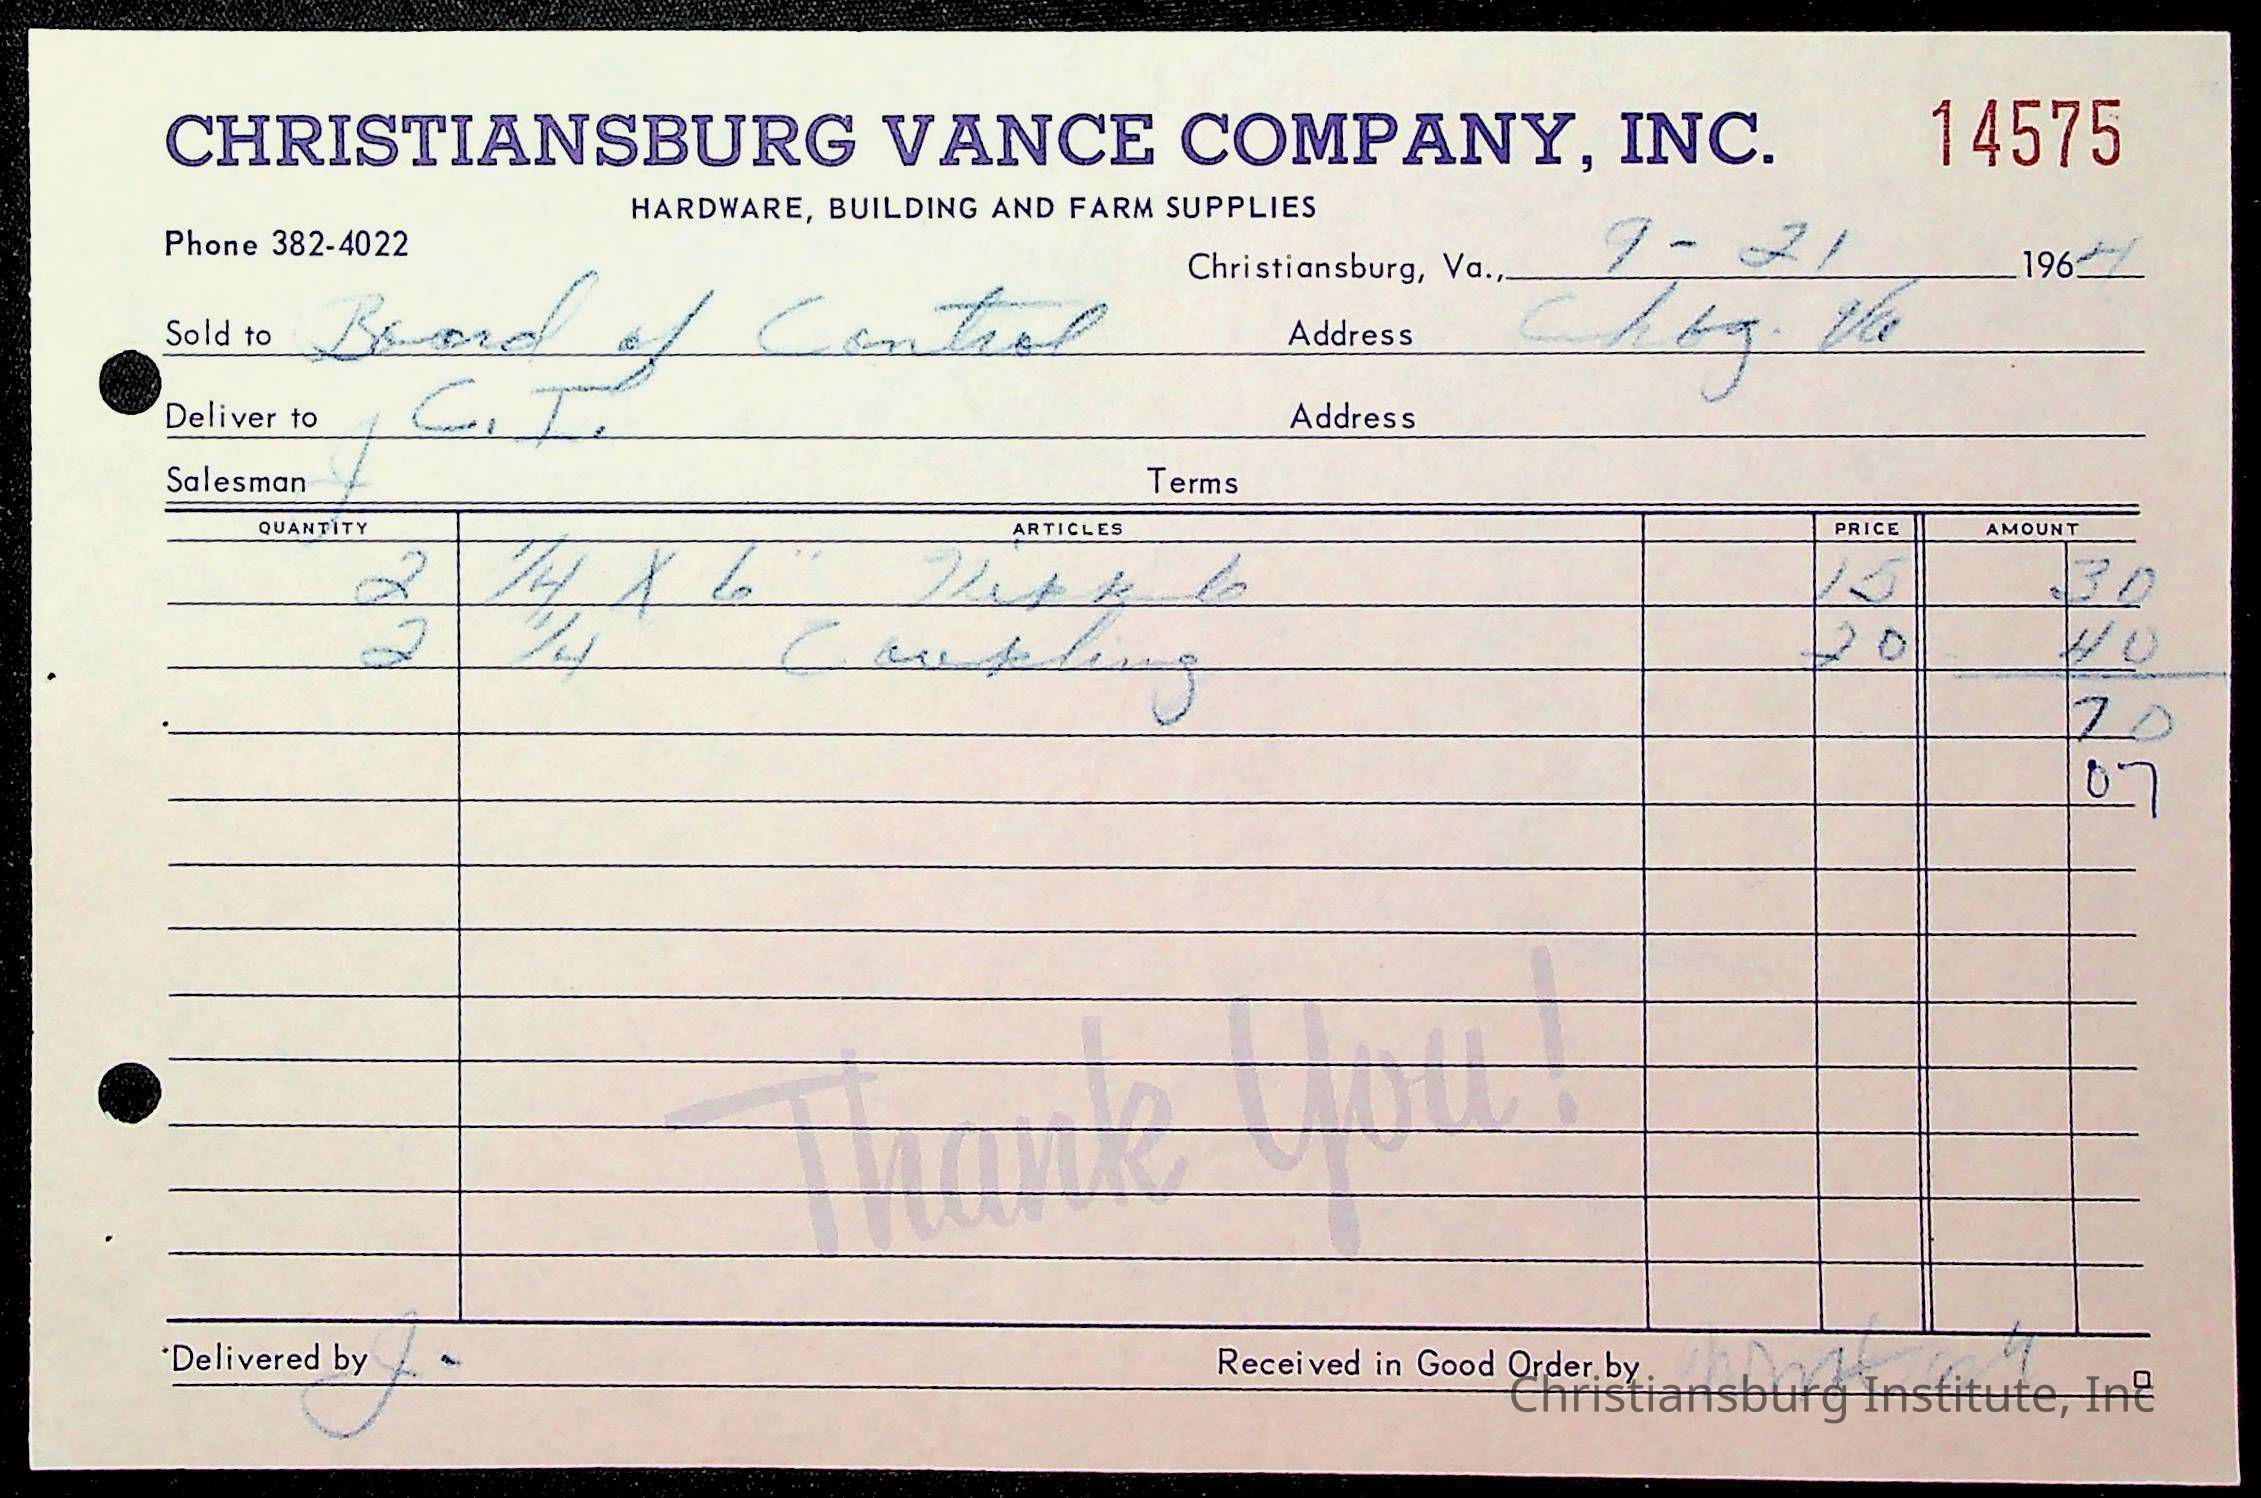 CHRISTIANSBURG VANCE COMPANY, INC. 14575
HARDWARE, BUILDING AND FARM SUPPLIES
Phone 382-4022
Christiansburg, Va., 9-21 1964
Sold to Board of Control Address Chbg. Va
Deliver to C. I. Address
Salesman J Terms
QUANTITY ARTICLES PRICE AMOUNT
2 1/4 X 6" 15 30
2 1/4 Coupling 20 40
70
07
Thank You!
Delivered by J. Received in Good Order by
Christiansburg Institute, Inc